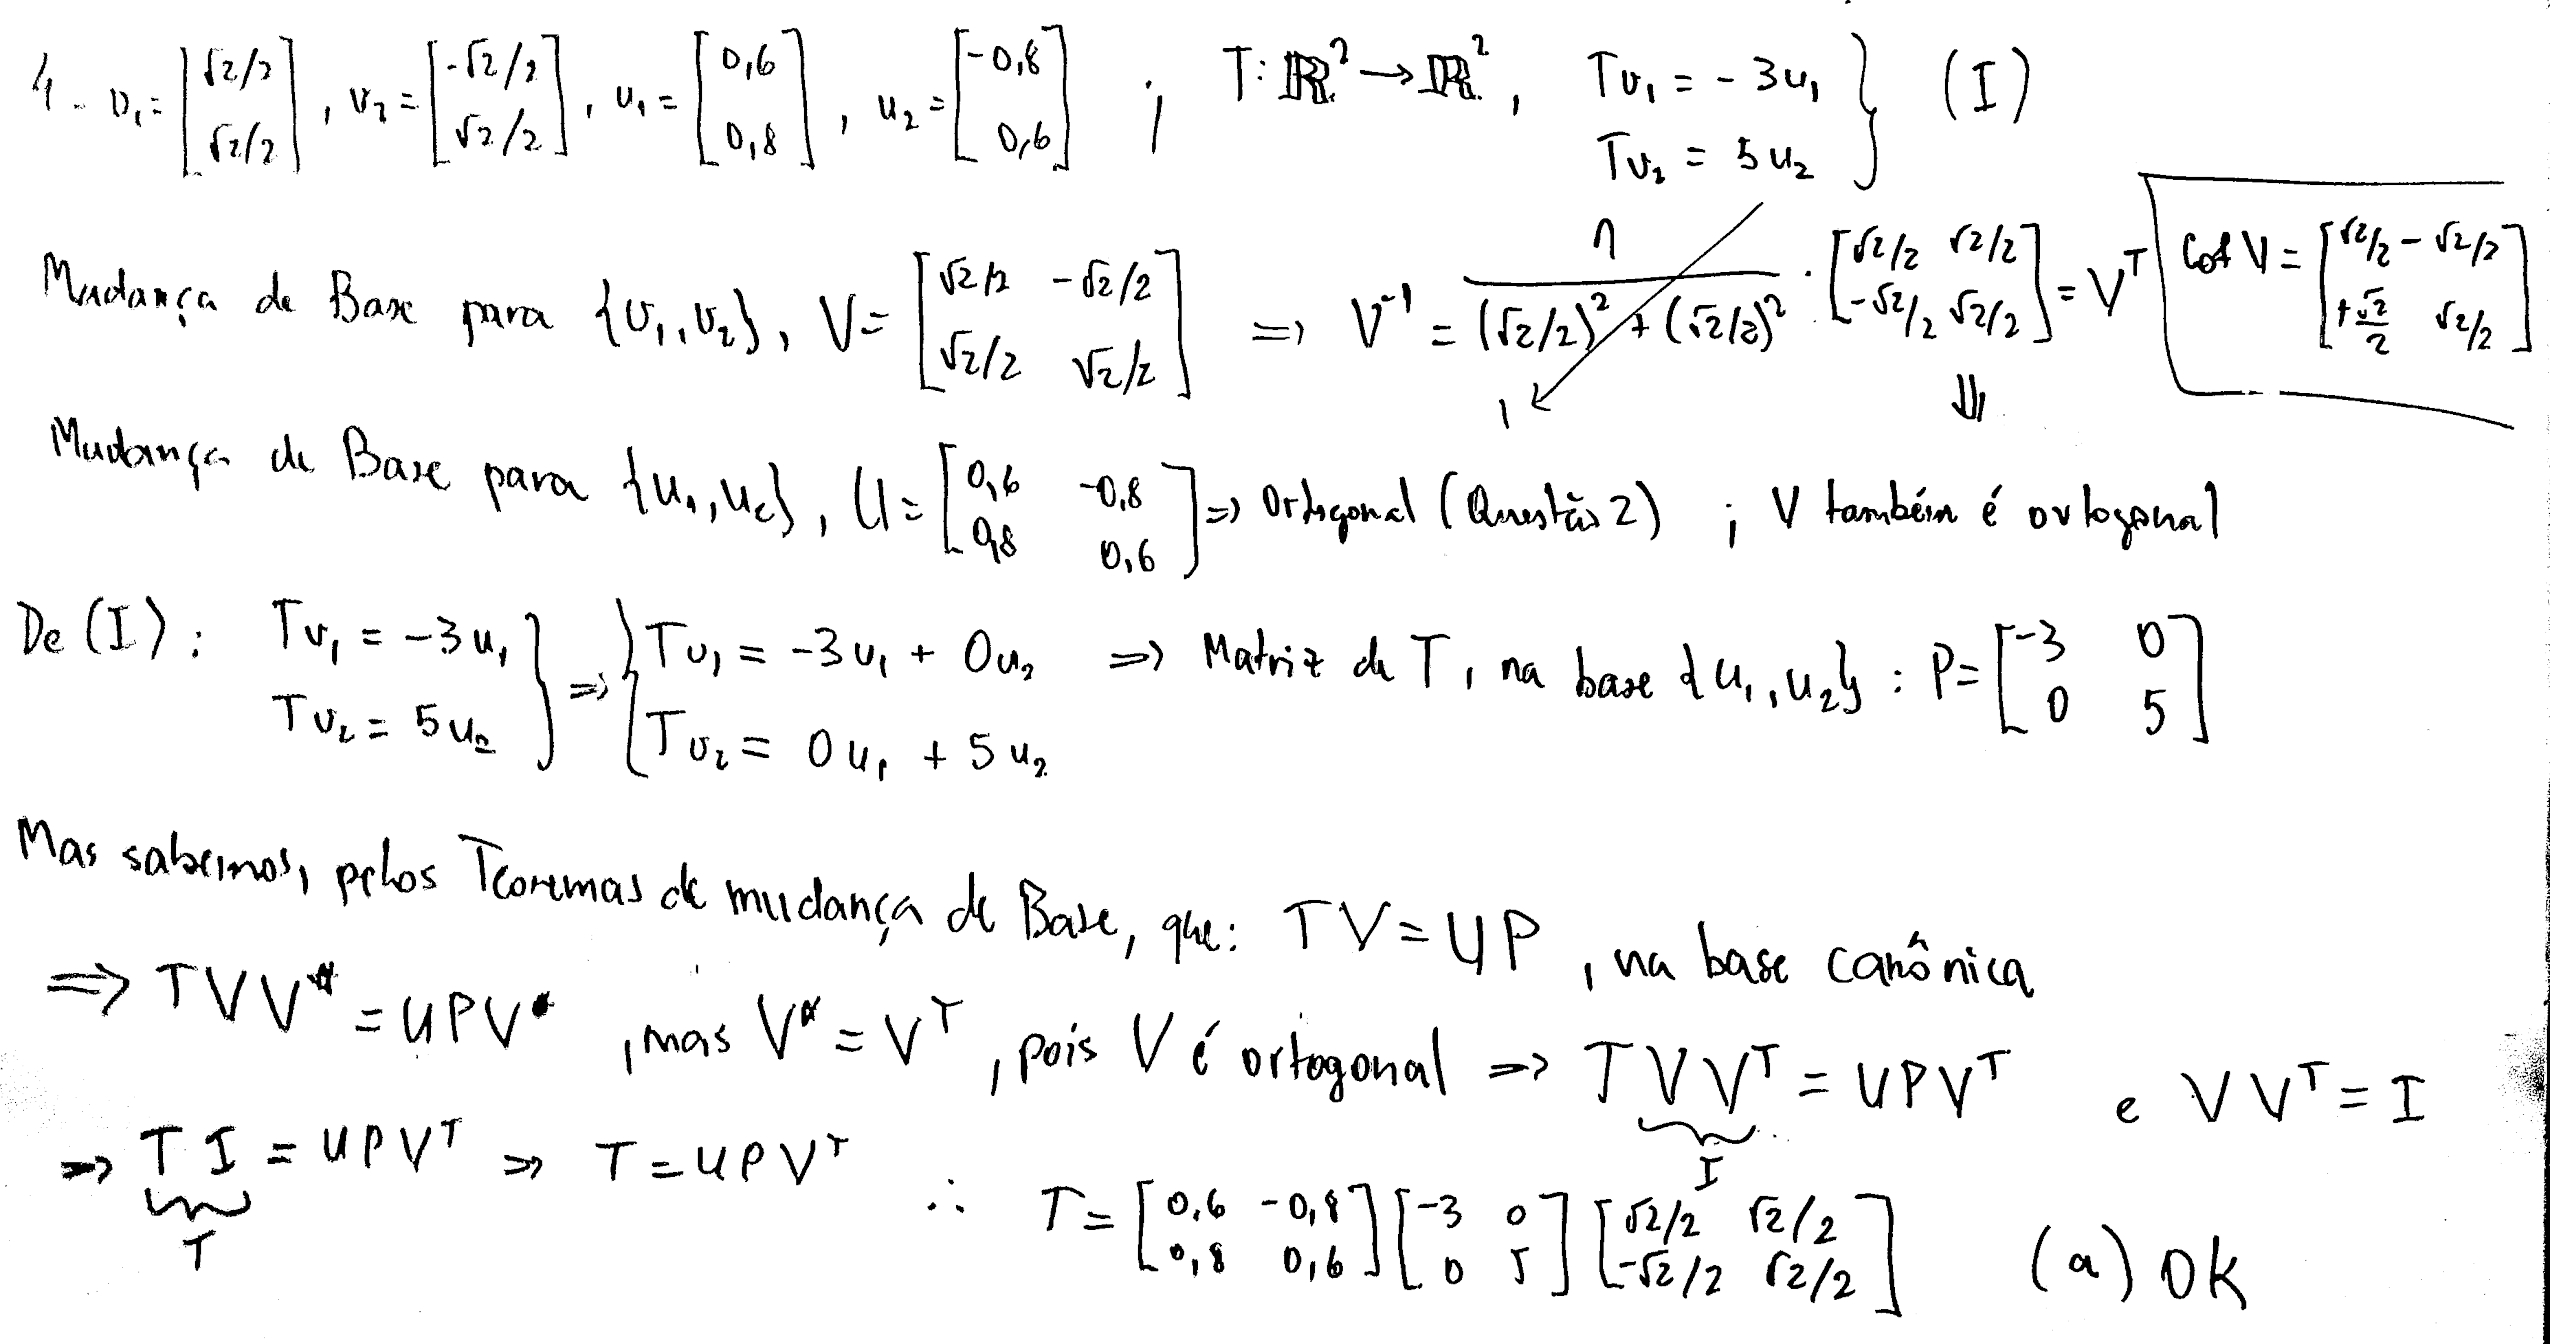 4. v₁ = [√2/2; √2/2], v₂ = [-√2/2; √2/2], u₁ = [0,6; 0,8], u₂ = [-0,8; 0,6] ; T: ℝ² → ℝ², Tv₁ = -3u₁ } (I)
Tv₂ = 5u₂
Mudança de Base para {v₁, v₂}, V = [√2/2 -√2/2; √2/2 √2/2] => V⁻¹ = 1/((√2/2)² + (√2/2)²) · [√2/2 √2/2; -√2/2 √2/2] = Vᵀ
1
⇓
Cof V = [√2/2 -√2/2; +√2/2 √2/2]
Mudança de Base para {u₁, u₂}, U = [0,6 -0,8; 0,8 0,6] => Ortogonal (Questão 2) ; V também é ortogonal
De (I): Tv₁ = -3u₁ } => { Tv₁ = -3u₁ + 0u₂ => Matriz de T, na base {u₁, u₂} : P = [-3 0; 0 5]
Tv₂ = 5u₂ Tv₂ = 0u₁ + 5u₂
Mas sabemos, pelos Teoremas de mudança de Base, que: TV = UP, na base canônica
=> TVV* = UPV*, mas V* = Vᵀ, pois V é ortogonal => TVVᵀ = UPVᵀ e VVᵀ = I
I
=> TI = UPVᵀ => T = UPVᵀ ∴ T = [0,6 -0,8; 0,8 0,6] [-3 0; 0 5] [√2/2 √2/2; -√2/2 √2/2] (a) OK
T